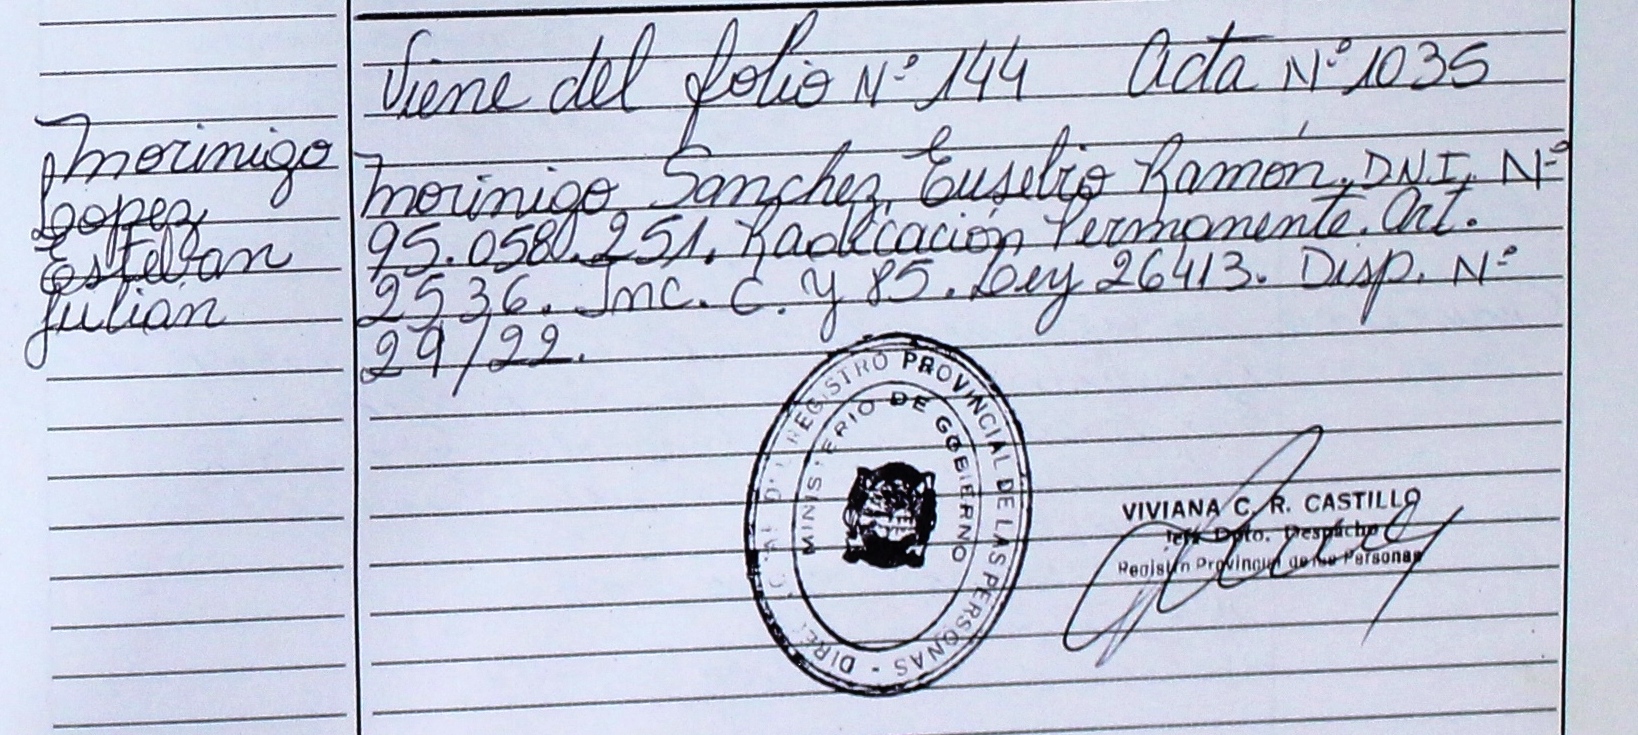 Viene del folio Nº 144 Acta Nº 1035
Morinigo
Lopez
Estevan
Julian
Morinigo Sanchez, Eusebio Ramón, D.N.I. Nº
95.058.251. Radicación Permanente. Art.
2536. Inc. C. y 85. Ley 26413. Disp. Nº
29/22.
REGISTRO PROVINCIAL DE LAS PERSONAS -
MINISTERIO DE GOBIERNO
VIVIANA C. R. CASTILLO
Jefa Dpto. Despacho
Registro Provincial de las Personas